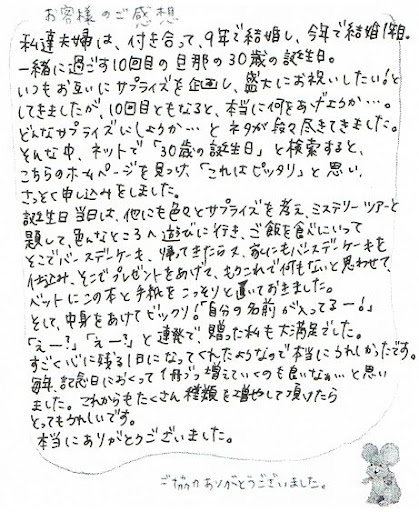 お客様のご感想
私達夫婦は、付き合って、9年で結婚し、今年で結婚1年目。
一緒に過ごす10回目の旦那の30歳の誕生日。
いつもお互いにサプライズを企画し、盛大にお祝いしたい!と
してきましたが、10回目ともなると、本当に何をあげようか…。
どんなサプライズにしようか…とネタが段々尽きてきました。
そんな中、ネットで「30歳の誕生日」と検索すると、
こちらのホームページを見つけ、「これはピッタリ」と思い、
さっそく申し込みをしました。
誕生日当日は、他にも色々とサプライズを考え、ミステリーツアーと
題して、色んなところへ遊びに行き、ご飯を食べにいって
そこでバースデーケーキ、帰ってきたら、家にもバースデーケーキを
仕込み、そこでプレゼントをあげて、もうこれで何もないと思わせて、
ベットにこの本と手紙をこっそりと置いておきました。
そして、中身をあけてビックリ!「自分の名前が入ってるー!」
「えー?」「えー?」と連発で、贈った私も大満足でした。
すごく心に残る1日になってくれたようなので本当にうれしかったです。
毎年、記念日におくって1冊づつ増えていくのも良いなぁ…と思い
ました。これからもたくさん種類を増やして頂けたら
とってもうれしいです。
本当にありがとうございました。
ご協力ありがとうございました。